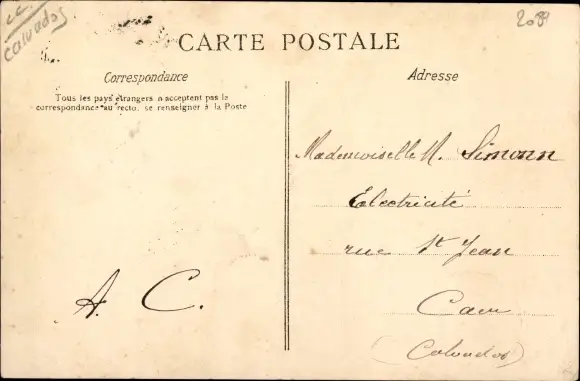 cc
calvados
2089
CARTE POSTALE
Correspondance
Tous les pays étrangers n acceptent pas la
correspondance au recto, se renseigner à la Poste
A. C.
Adresse
Mademoiselle M. Simonn
Electricité
rue St Jean
Caen
(Calvados)